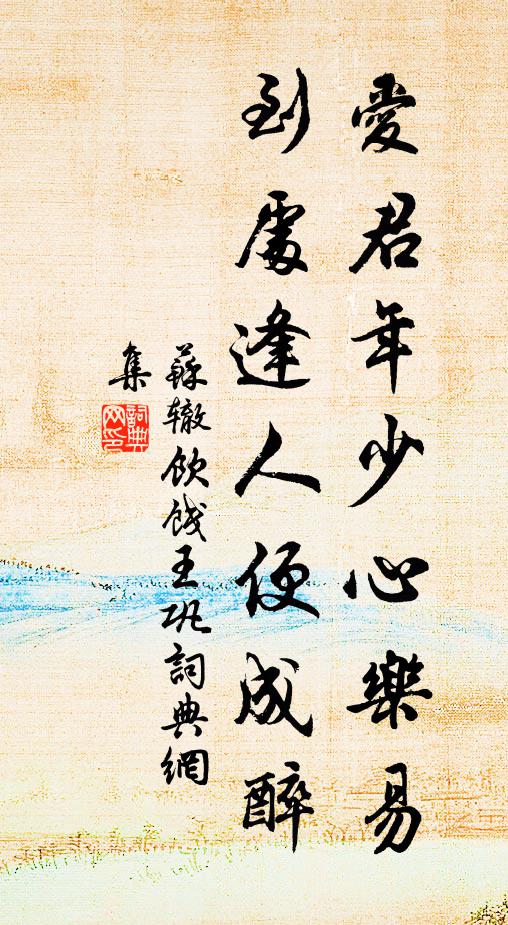 愛君年少心樂易
到處逢人便成醉
蘇辙飲餞王巩詞典網
集
詞典
网印